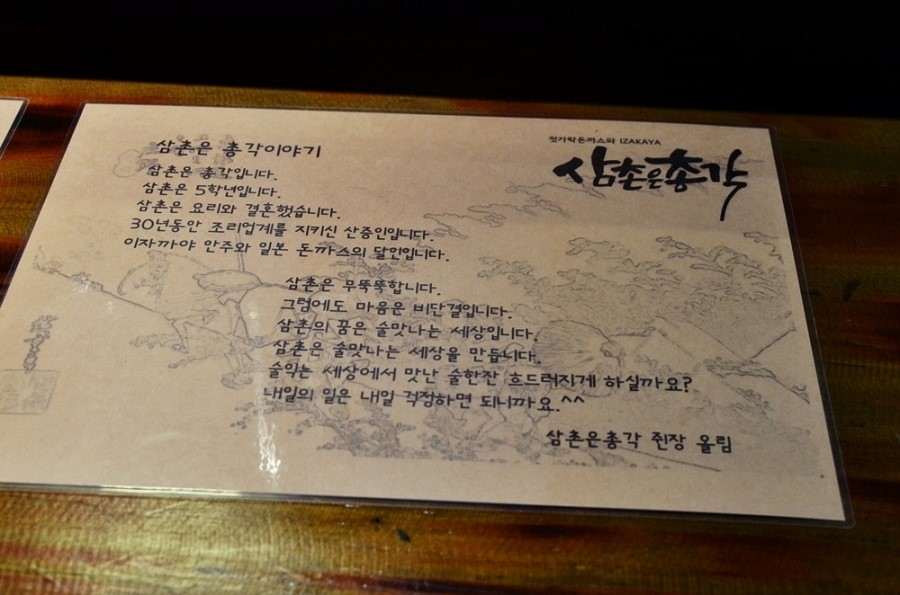 젓가락돈까스와 IZAKAYA
삼촌은총각
삼촌은 총각이야기
삼촌은 총각입니다.
삼촌은 5학년입니다.
삼촌은 요리와 결혼했습니다.
30년동안 조리업계를 지키신 산증인입니다.
이자까야 안주와 일본 돈까스의 달인입니다.
삼촌은 무뚝뚝합니다.
그럼에도 마음은 비단결입니다.
삼촌의 꿈은 술맛나는 세상입니다.
삼촌은 술맛나는 세상을 만듭니다.
술익는 세상에서 맛난 술한잔 흐드러지게 하실까요?
내일의 일은 내일 걱정하면 되니까요.^^
삼촌은총각 쥔장 올림